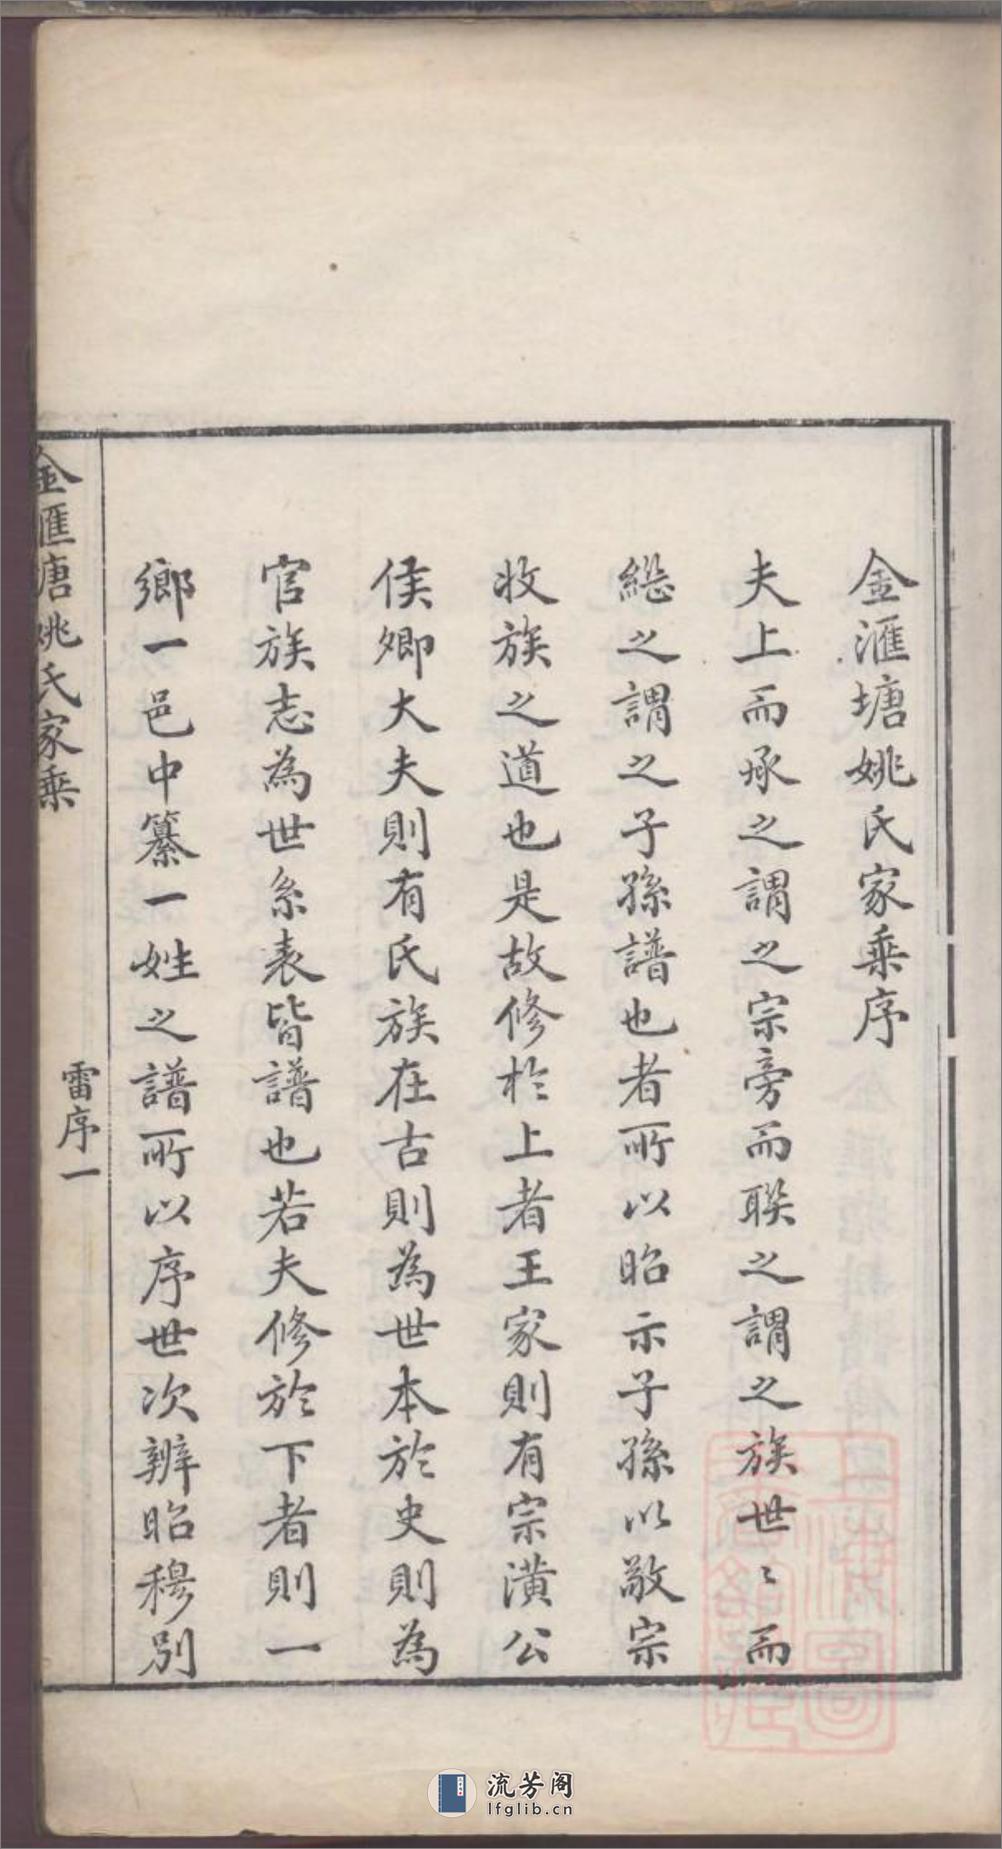 金滙塘姚氏家乘序
夫上而承之謂之宗旁而聯之謂之族世〻而
緫之謂之子孫譜也者所以昭示子孫以敬宗
收族之道也是故修於上者王家則有宗潢公
侯卿大夫則有氏族在古則為世本於史則為
官族志為世系表皆譜也若夫修於下者則一
鄉一邑中纂一姓之譜所以序世次辨昭穆別
金滙塘姚氏家乘
雷序一
流芳阁
lfglib.cn